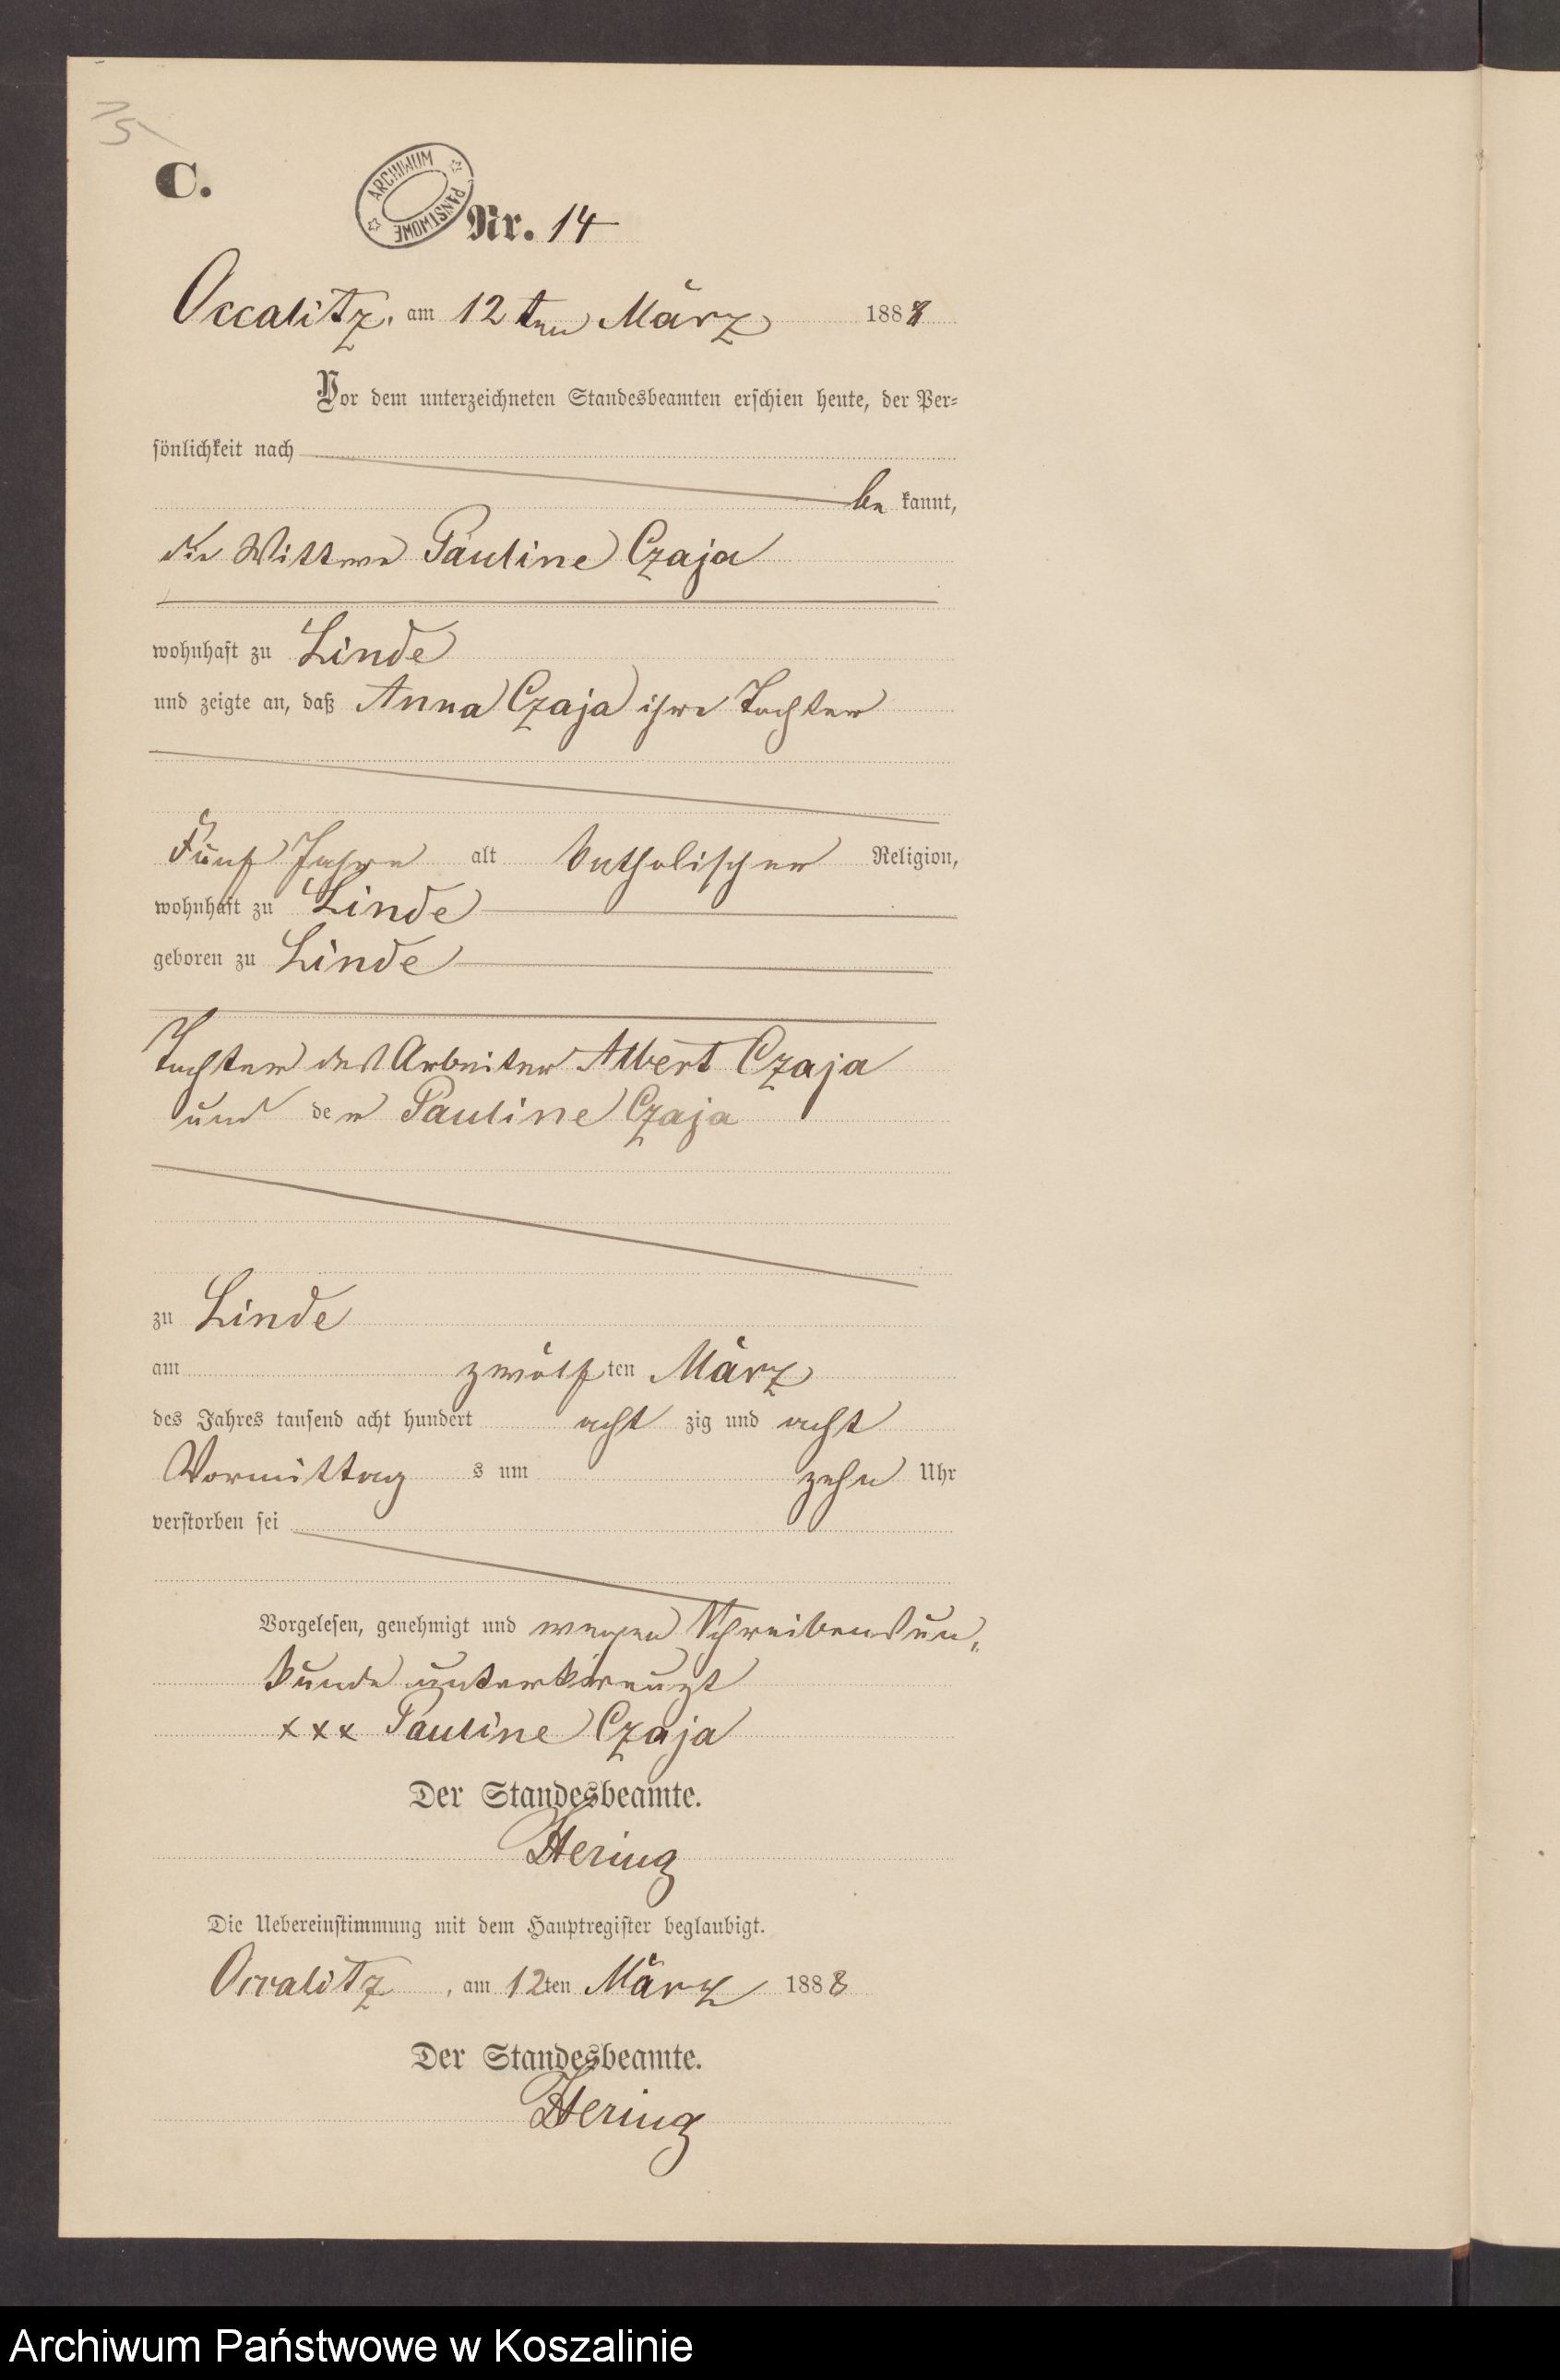 75
C.
ARCHIWUM PAŃSTWOWE
Nr. 14
Occalitz, am 12ten März 1888
Vor dem unterzeichneten Standesbeamten erschien heute, der Per-
sönlichkeit nach
be kannt,
die Wittwe Pauline Czaja
wohnhaft zu Linde
und zeigte an, daß Anna Czaja ihre Tochter
Fünf Jahre alt katholischer Religion,
wohnhaft zu Linde
geboren zu Linde
Tochter des Arbeiter Albert Czaja
und der Pauline Czaja
zu Linde
am zwölf ten März
des Jahres tausend acht hundert acht zig und acht
Vormittag s um zehn Uhr
verstorben sei
Vorgelesen, genehmigt und wegen Schreibensun-
kunde unterkreuzt
xxx Pauline Czaja
Der Standesbeamte.
Hering
Die Uebereinstimmung mit dem Hauptregister beglaubigt.
Occalitz, am 12ten März 1888
Der Standesbeamte.
Hering
Archiwum Państwowe w Koszalinie